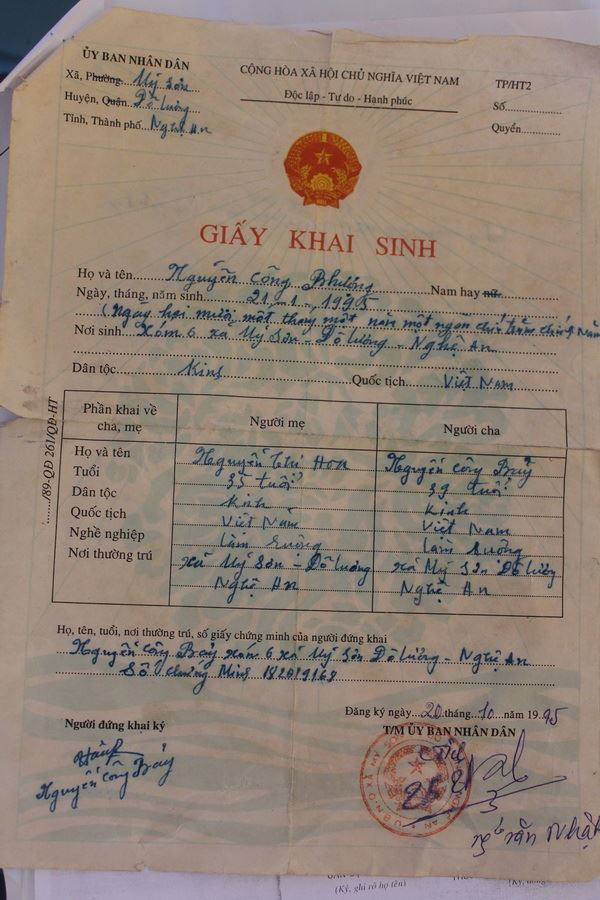 ỦY BAN NHÂN DÂN
Xã, Phường... Mỹ Sơn
Huyện, Quận... Đô Lương
Tỉnh, Thành phố... Nghệ An
CỘNG HÒA XÃ HỘI CHỦ NGHĨA VIỆT NAM
Độc lập - Tự do - Hạnh phúc
TP/HT2
Số............
Quyển............
GIẤY KHAI SINH
Họ và tên... Nguyễn Công Phượng Nam hay nữ...
Ngày, tháng, năm sinh... 21 - 1 - 1995
(Ngày hai mươi một tháng một năm một ngàn chín trăm chín năm
Nơi sinh... Xóm 6 xã Mỹ Sơn - Đô Lương - Nghệ An
Dân tộc... Kinh Quốc tịch... Việt Nam
...../89-QĐ 261/QĐ-HT
Phần khai về cha, mẹ Người mẹ Người cha
Họ và tên Nguyễn Thị Hoa Nguyễn Công Bảy
Tuổi 35 tuổi 39 tuổi
Dân tộc Kinh Kinh
Quốc tịch Việt Nam Việt Nam
Nghề nghiệp Làm ruộng Làm ruộng
Nơi thường trú xã Mỹ Sơn - Đô Lương xã Mỹ Sơn Đô Lương
Nghệ An Nghệ An
Họ, tên, tuổi, nơi thường trú, số giấy chứng minh của người đứng khai
Nguyễn Công Bảy xóm 6 xã Mỹ Sơn Đô Lương - Nghệ An
Số chứng minh 182019168
Đăng ký ngày 20 tháng 10 năm 1995
Người đứng khai ký
T/M ỦY BAN NHÂN DÂN
Nguyễn Công Bảy
Nhật
(Ký, ghi rõ họ tên)